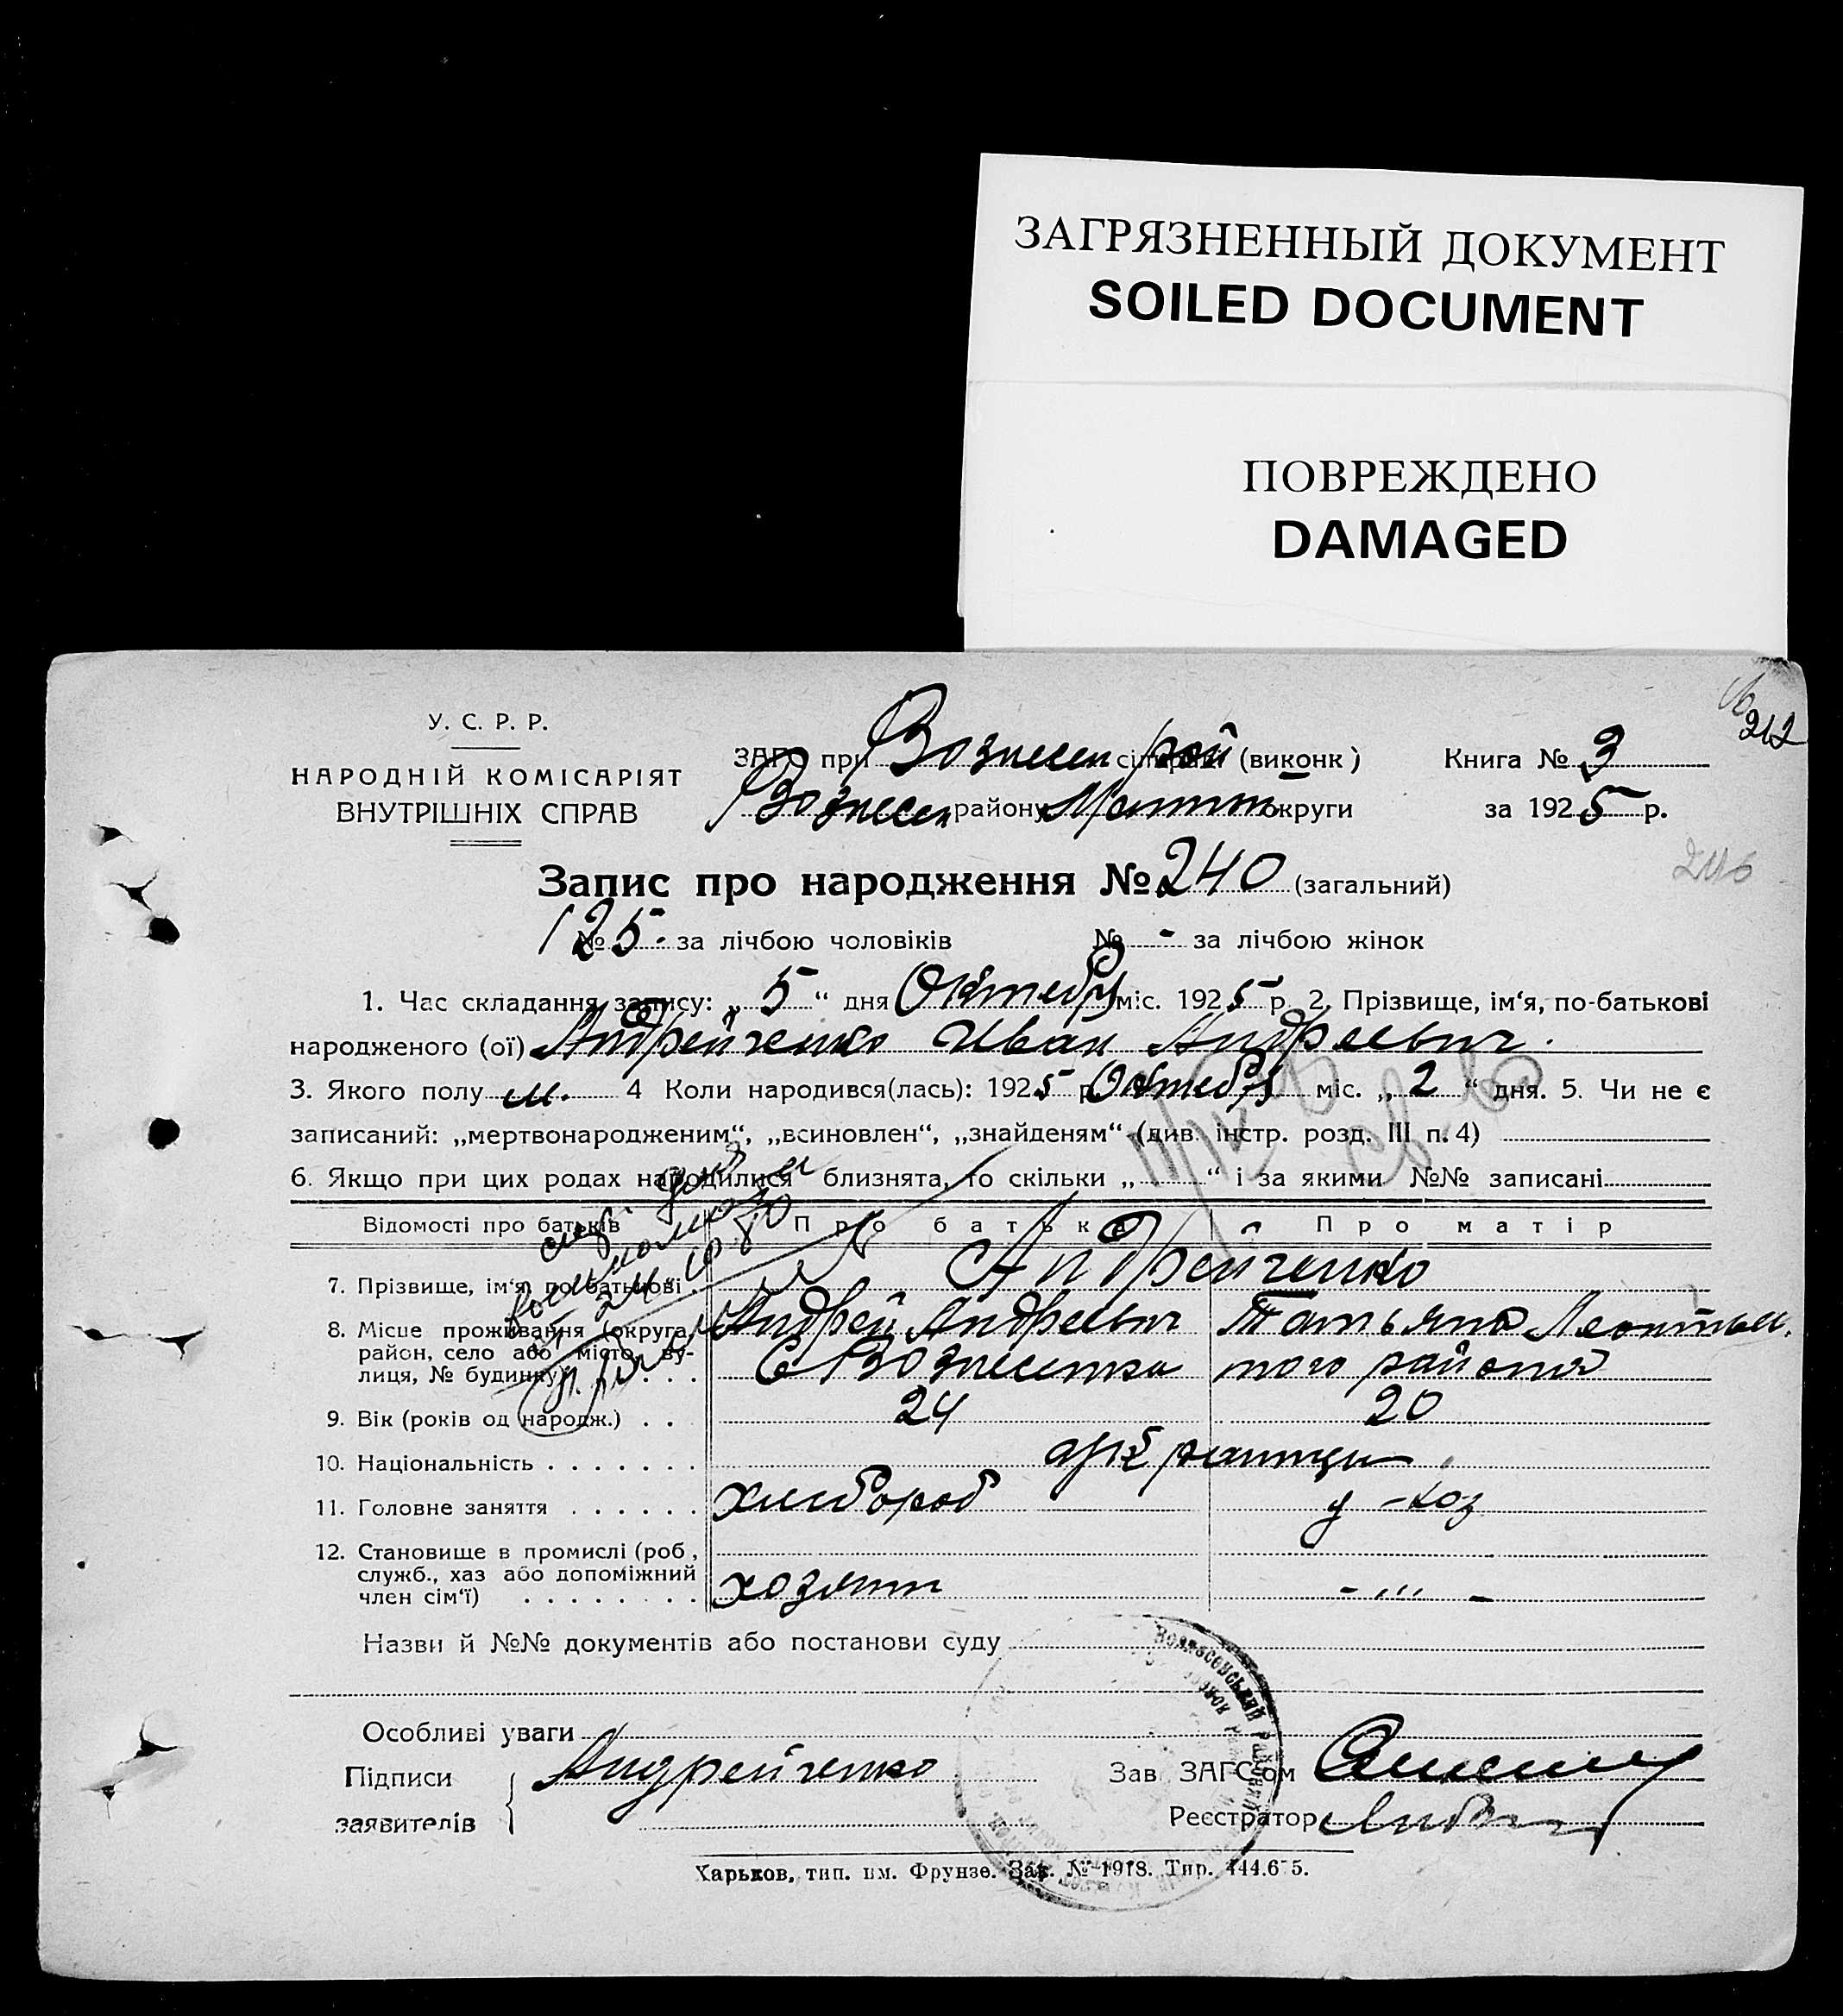 ЗАГРЯЗНЕННЫЙ ДОКУМЕНТ
SOILED DOCUMENT
ПОВРЕЖДЕНО
DAMAGED
212
У. С. Р. Р.
НАРОДНІЙ КОМІСАРІЯТ
ВНУТРІШНІХ СПРАВ
ЗАГС при Вознесен рай (виконк)
Вознесен району округи
Книга № 3
за 1925 р.
Запис про народження № 240 (загальний)
№ 125 за лічбою чоловіків № - за лічбою жінок
1. Час складання запису: „ 5 “ дня Октебря міс. 1925 р. 2. Прізвище, ім‘я, по-батькові
народженого (ої) Андрейченко Иван Андреевич.
3. Якого полу м. 4 Коли народився(лась): 1925 р. Октебря міс. „ 2 “ дня. 5. Чи не є
записаний: „мертвонародженим“, „всиновлен“, „знайденям“ (див. інстр. розд. III п. 4)
6. Якщо при цих родах народилися близнята, то скільки „ “ і за якими №№ записані
Відомості про батьків Про батька Про матір
7. Прізвище, ім‘я, по-батькові Андрейченко
Андрей Андреевич Татьяна
8. Місце проживання (округа, район, село або місто, вулиця, № будинку) С Вознесенка того района
9. Вік (років од народж.) 24 20
10. Національність
11. Головне заняття хлебороб
12. Становище в промислі (роб., служб., хаз або допоміжний член сім‘ї) хозяин
Назви й №№ документів або постанови суду
Особливі уваги
Підписи заявителів Андрейченко
Зав ЗАГС‘ом
Реєстратор
Харьков, тип. им. Фрунзе. Зак. № 1918. Тир.